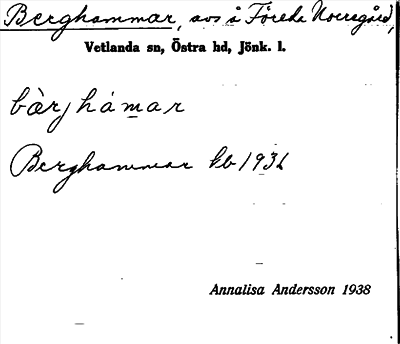 Berghammar, avs å Föreda Norrgård,
Vetlanda sn, Östra hd, Jönk. l.
bàrjhámar
Berghammar kb 1931
Annalisa Andersson 1938